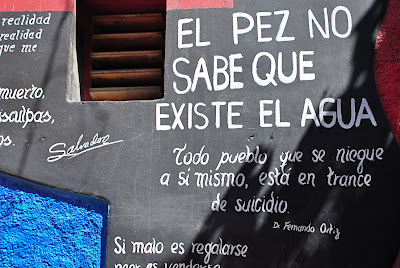 realidad
realidad
que me
muerto,
isculpas,
os.
Salvador
EL PEZ NO
SABE QUE
EXISTE EL AGUA
Todo pueblo que se niegue
a sí mismo, está en trance
de suicidio.
Dr. Fernando Ortiz
Si malo es regalarse
peor es venderse